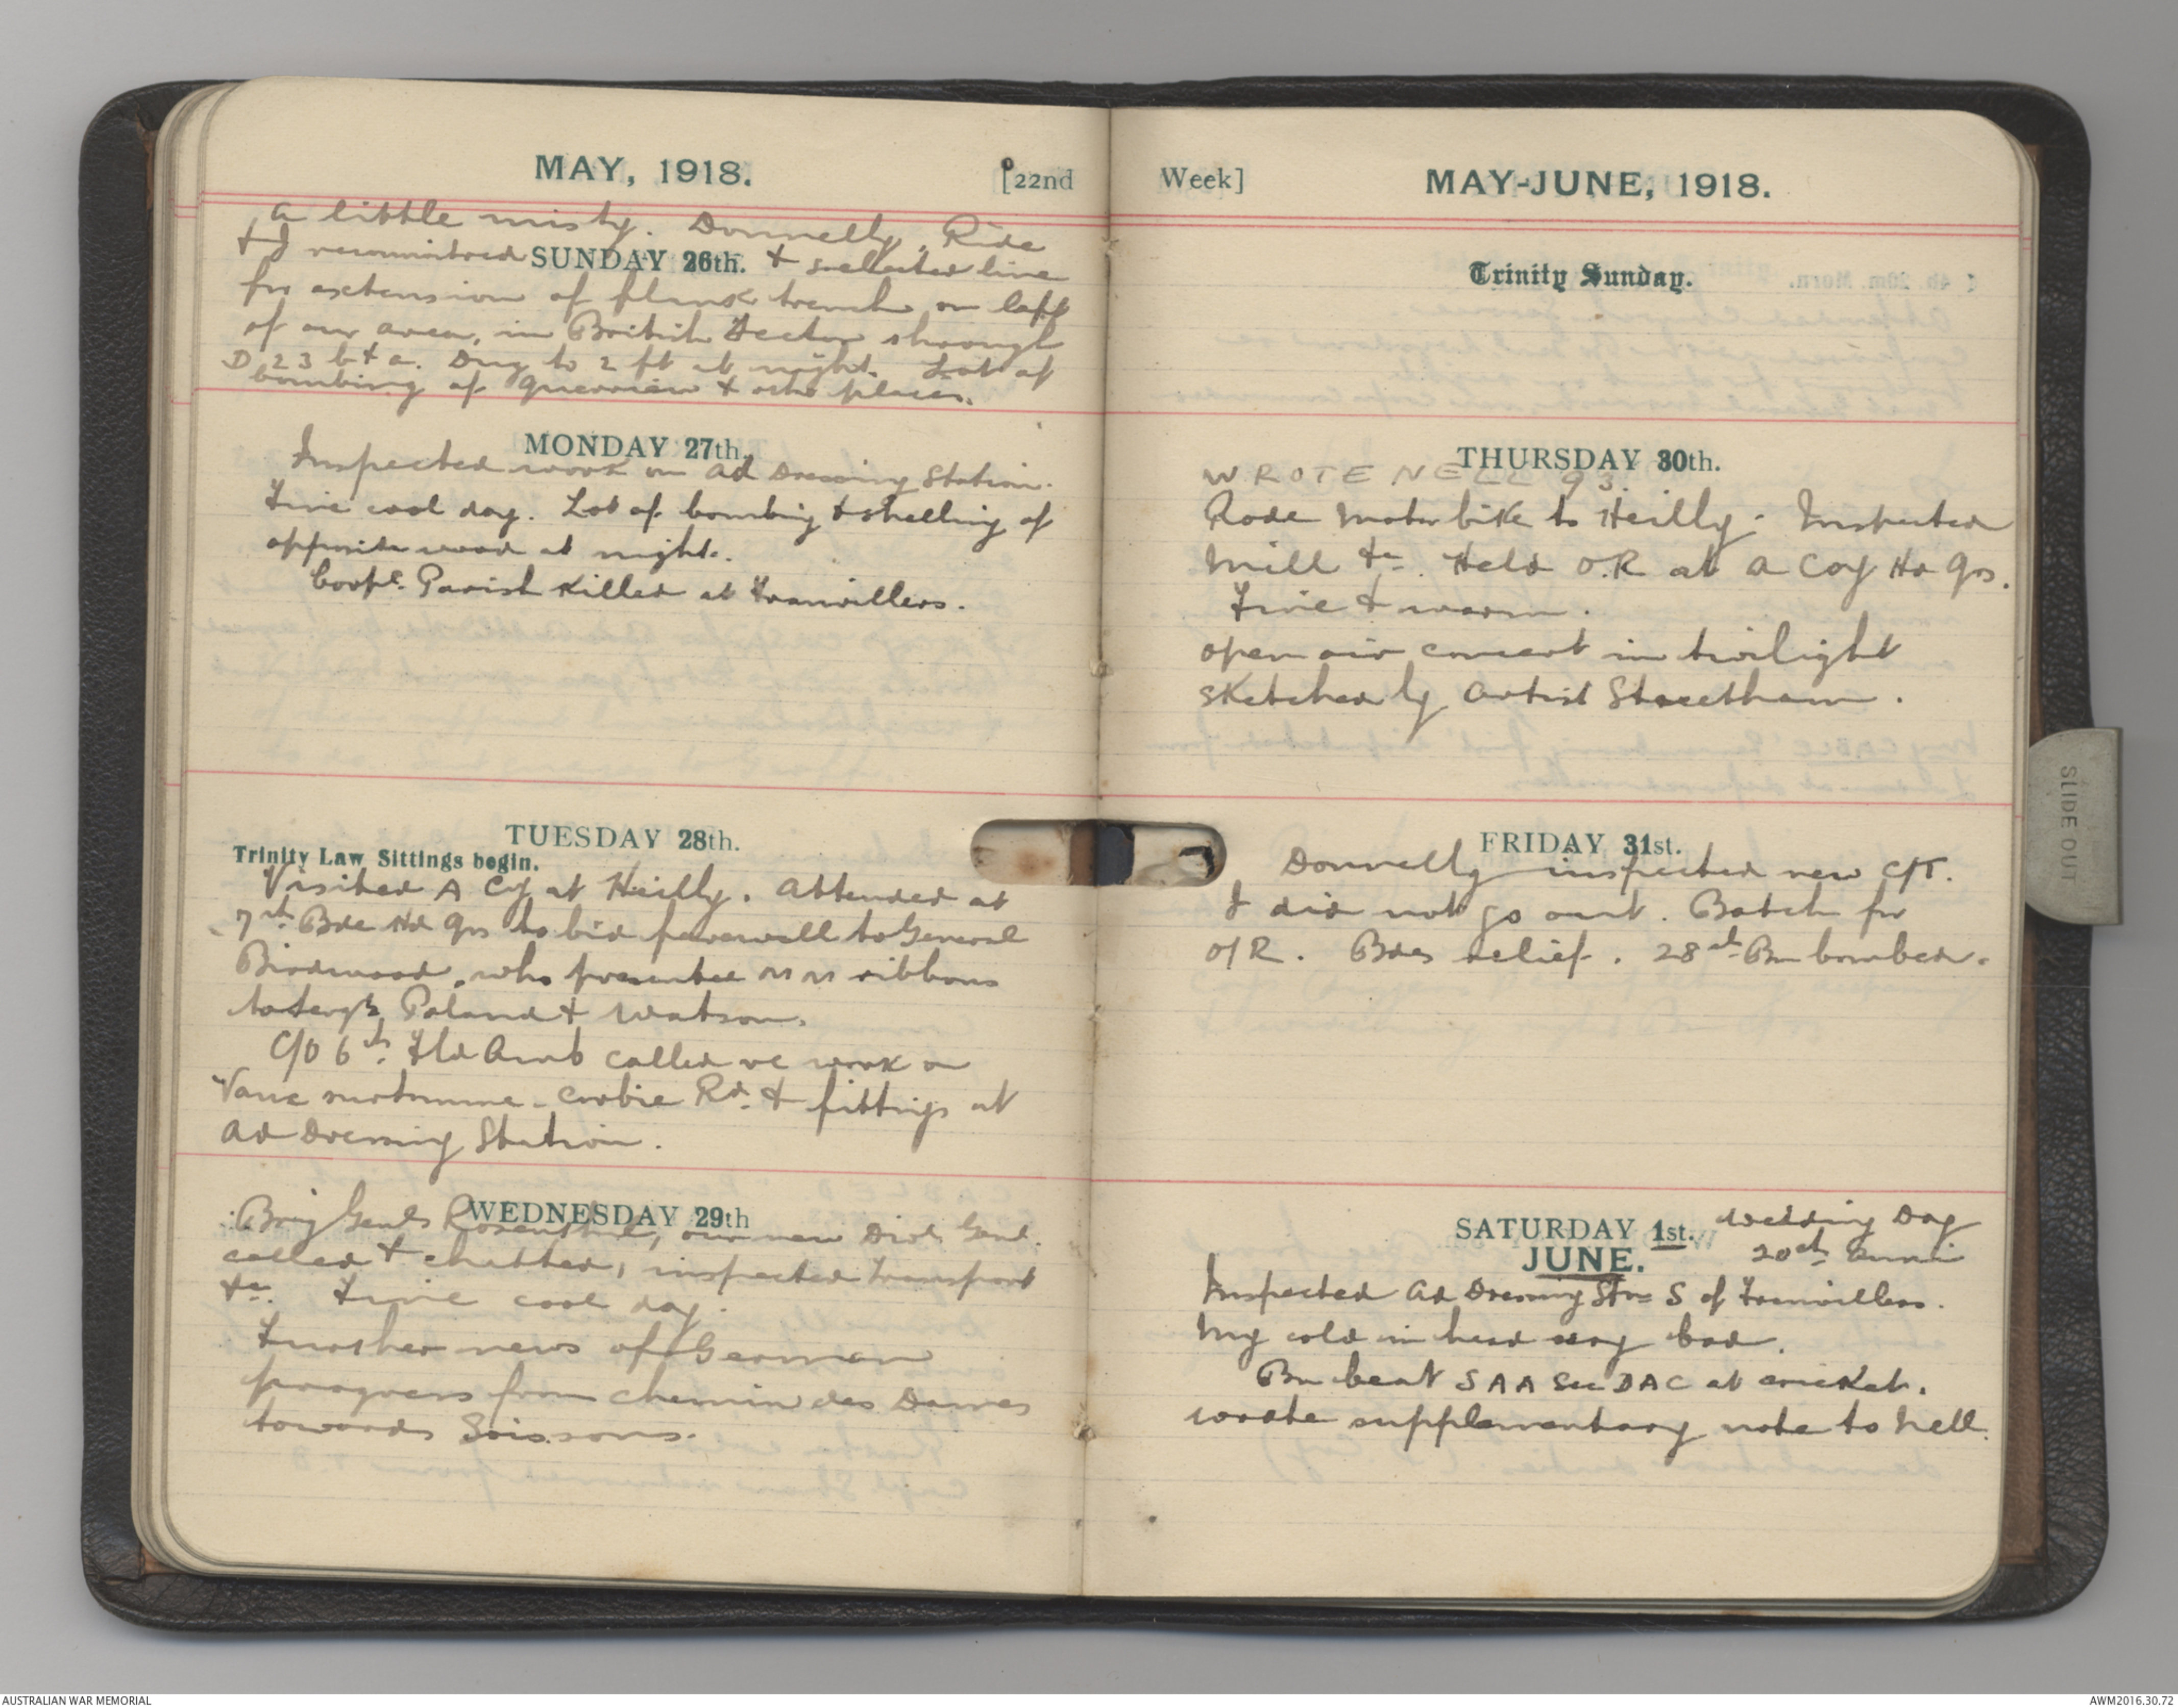 MAY, 1918. [22nd
A little misty. Donnelly, Ride
SUNDAY 26th.
+ I reconnoitred + selected line
for extension of flank trench on left
of our area, in British Sector through
D 23 b + a. Dug to 2 ft at night. Lot of
bombing of Querrieu + other places.
MONDAY 27th.
Inspected work on Ad Dressing Station.
Fine cool day. Lot of bombing + shelling of
opposite wood at night.
Corpl. Parish killed at Franvillers.
TUESDAY 28th.
Trinity Law Sittings begin.
Visited A Coy at Heilly. Attended at
7th Bde Hd Qrs to bid farewell to General
Birdwood, who presented MM ribbons
to Sergts Poland + Watson.
C/O 6th Fld Amb called re work on
Corbie Rd. + fittings at
Ad Dressing Station.
WEDNESDAY 29th
Brig Genls Rosenthal, our new Divl Genl.
called + chatted, inspected transport
&c. Fine cool day.
Further news of German
progress from Chemin des Dames
towards Soissons.
Week] MAY-JUNE, 1918.
Trinity Sunday.
THURSDAY 30th.
WROTE NELL 93.
Rode motor bike to Heilly. Inspected
Mill &c. Held O.R at A Coy Hd Qrs.
Fine + warm.
open air concert in twilight
sketched by Artist Streetham.
FRIDAY 31st.
Donnelly inspected new C/T.
I did not go out. Batch for
O/R. Bdes relief. 28th Bn bombed.
SATURDAY 1st. Wedding Day
JUNE. 20th Anni
Inspected Ad Dressing Stn S of Franvillers.
My cold in head very bad.
Bn beat SAA Sec DAC at cricket.
wrote supplementary note to Nell.
SLIDE OUT
AUSTRALIAN WAR MEMORIAL
AWM2016.30.72